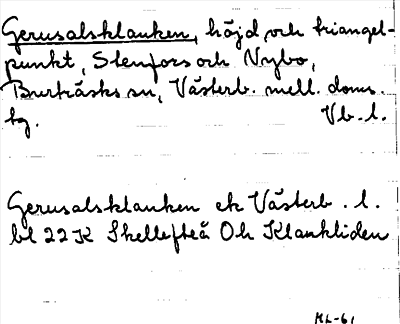 Gerusalsklauken, höjd och triangel-
punkt, Stenfors och Nybo,
Burträsks sn, Västerb. mell. doms.
tg. Vb. l.
Gerusalsklauken ek Västerb. l.
bl 22K Skellefteå Oh Klaukliden
KL-61